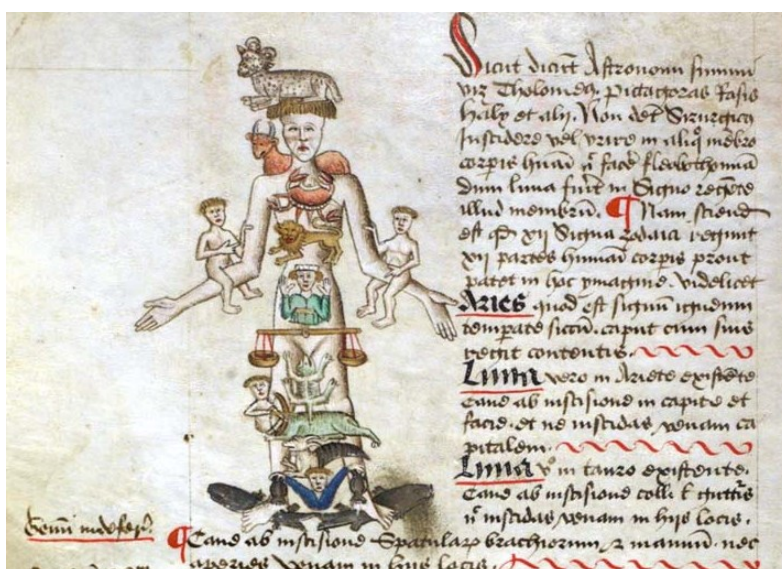 Sicut dicūt Astronomi summi
viz Tholomeꝰ. Pictagoras Rasis
Haly et alij. Non det Sirurgicꝰ
Inscidere vel vrere in aliqͦ mēbro
corpis hūaī ñ facē fleobothomiā
dum luna fūit in Signo regēte
illud membrū. ¶ Nam sciend
est ꝙ xij Signa zodiaci regunt
xij partes humāi corpis prout
patet in hac ymagine. videlicet
Aries quod est signū igneum
temperate siccū. caput cum suis
regit contentis.
Luna vero in Ariete existēte
Caue ab inscisione in capite et
facie. et ne inscidas venam ca
pitalem.
Luna vͦ in tauro existente.
Caue ab inscisione colli. t̄ gutturis
ñ inscidas venam in hijs locis.
Gemī
¶ Caue ab inscisione Spatularꝝ brachiorum, ⁊ manuū. nec
aperies venam in hijs locis.